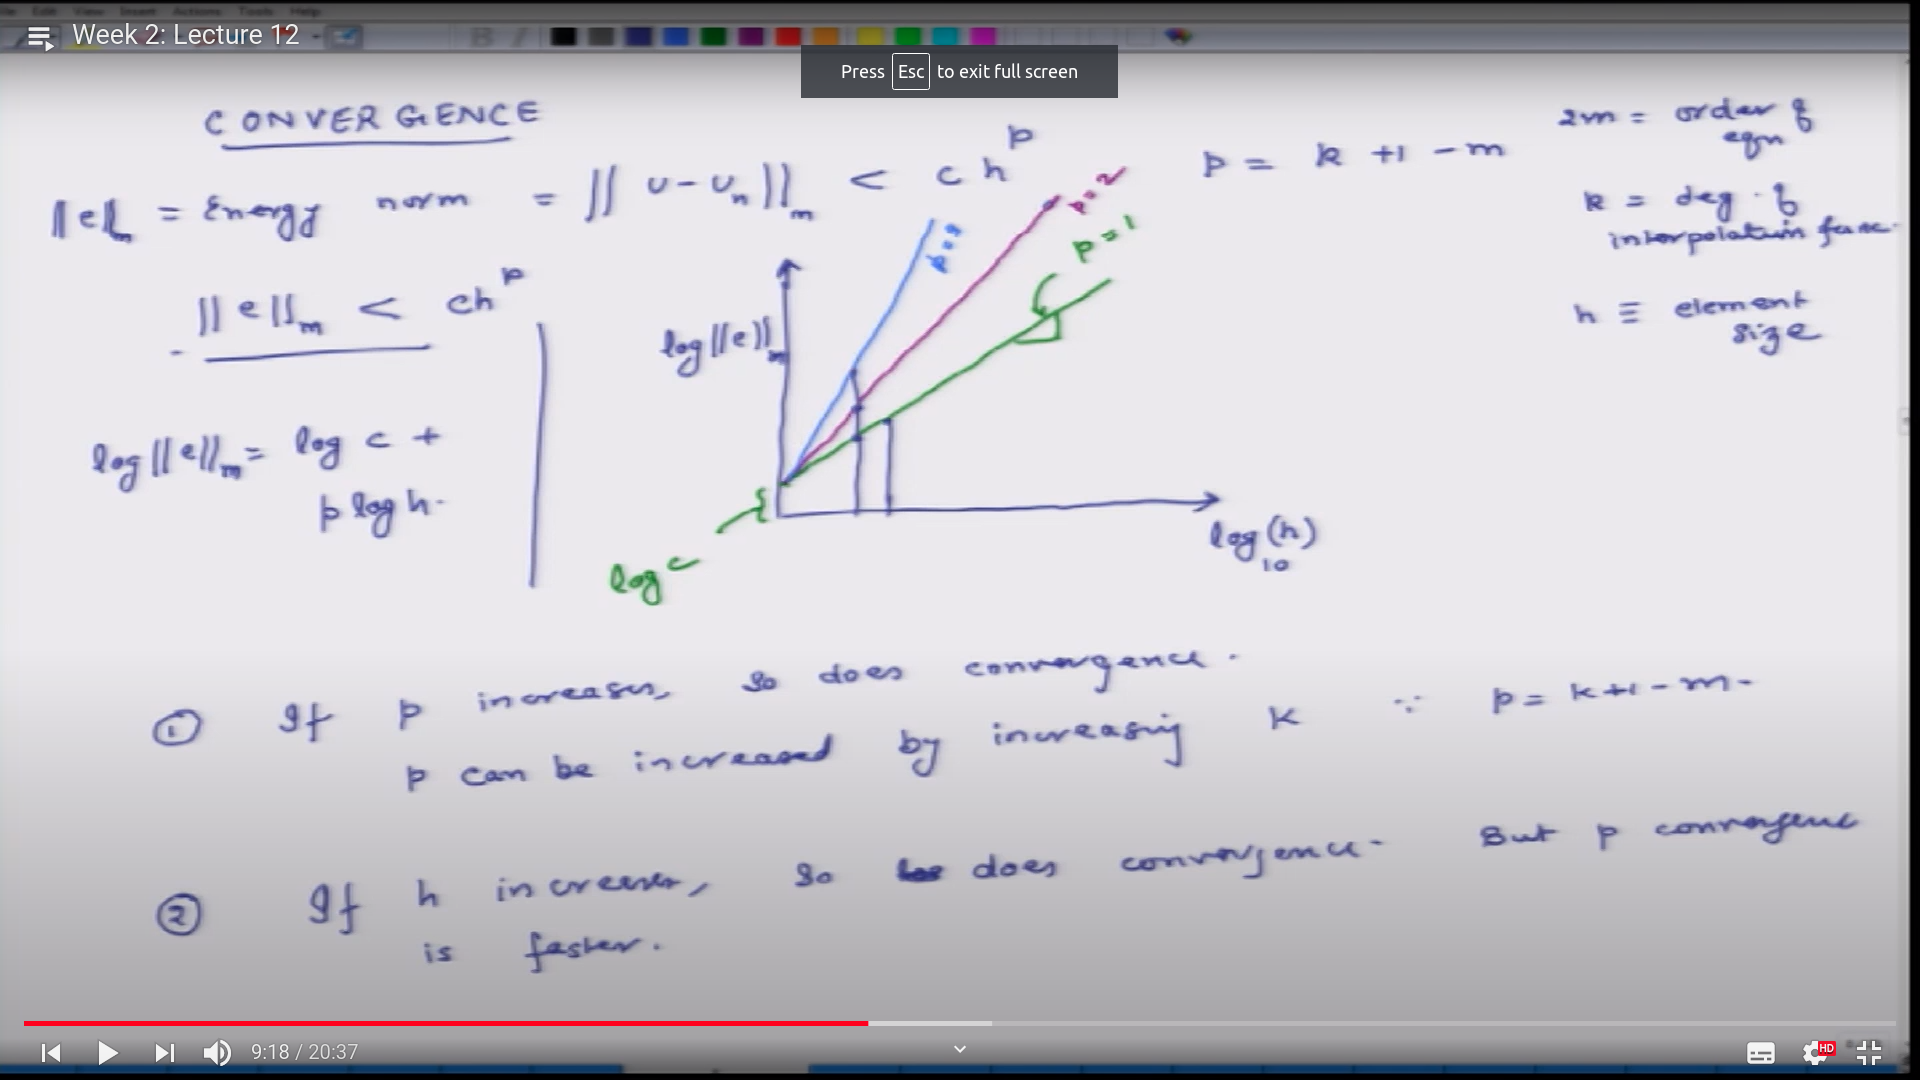 File Edit View Insert Actions Tools Help
Week 2: Lecture 12
Press Esc to exit full screen
CONVERGENCE
||e||m = Energy norm = || u - un ||m < c h^p
p = k + 1 - m
2m = order of eqn
k = deg. of interpolation func.
h ≡ element size
||e||m < ch^p
log ||e||m = log c +
p log h.
log ||e||m
p=3
p=2
p=1
log c
log10(h)
① If p increases, so does convergence.
p can be increased by increasing k ∵ p = k+1-m.
② If h increases, so does convergence. But p convergence
is faster.
9:18 / 20:37
HD